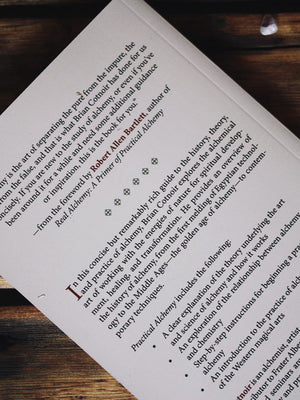 ny is the art of separating the pure from the impure, the
from the false, and that is what Brian Cotnoir has done for us
ncisely. If you are new to the study of alchemy, or even if you've
been around it for a while and need some additional guidance
or inspiration, this is the book for you."
—from the foreword by Robert Allen Bartlett, author of
Real Alchemy: A Primer of Practical Alchemy
In this concise but remarkably rich guide to the history, theory,
and practice of alchemy, Brian Cotnoir explores the alchemical
art of working with the energies of nature for spiritual develop-
ment, healing, and transformation. He provides an overview of
the history of alchemy, from the first melding of Egyptian technol-
ogy to the Middle Ages—the golden age of alchemy—to contem-
porary techniques.
Practical Alchemy includes the following:
• A clear explanation of the theory underlying the art
and science of alchemy and how it works
• An exploration of the relationship between alchemy
and chemistry
• Step-by-step instructions for beginning a pr
alchemy
• An introduction to the practice of al
of the Western magical arts
noir is an alchemist, arti